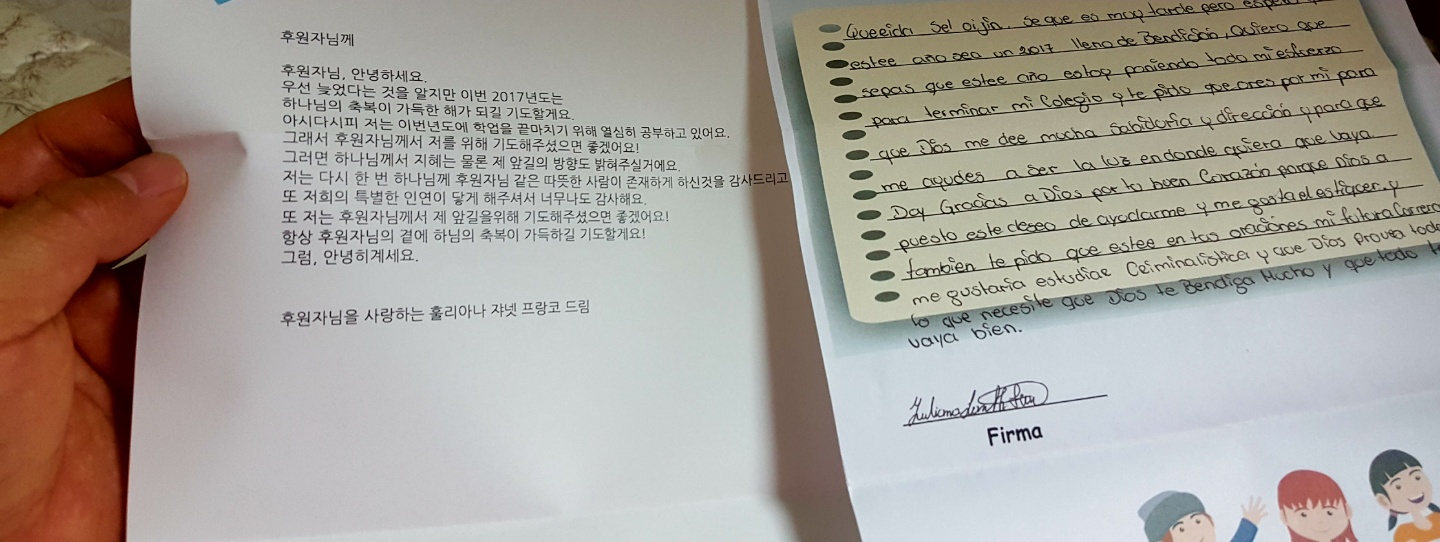 후원자님께
후원자님, 안녕하세요.
우선 늦었다는 것을 알지만 이번 2017년도는
하나님의 축복이 가득한 해가 되길 기도할게요.
아시다시피 저는 이번년도에 학업을 끝마치기 위해 열심히 공부하고 있어요.
그래서 후원자님께서 저를 위해 기도해주셨으면 좋겠어요!
그러면 하나님께서 지혜는 물론 제 앞길의 방향도 밝혀주실거에요.
저는 다시 한 번 하나님께 후원자님 같은 따뜻한 사람이 존재하게 하신것을 감사드리고
또 저희의 특별한 인연이 닿게 해주셔서 너무나도 감사해요.
또 저는 후원자님께서 제 앞길을위해 기도해주셨으면 좋겠어요!
항상 후원자님의 곁에 하님의 축복이 가득하길 기도할게요!
그럼, 안녕히계세요.
후원자님을 사랑하는 훌리아나 쟈넷 프랑코 드림
Sel oijin. se que es muy tarde pero
estee año sea un 2017 llena de Bendición, Quiero que
sepas que estee año estoy poniendo todo mi esfuerzo
para terminar mi Colegio y te pido que ores por mi para
que Dios me dee mucha Sabiduría y dirección y para que
me ayudes a ser la luz en donde quiera que vaya.
Doy Gracias a Dios por tu buen Corazón porque Dios a
puesto este deseo de ayudarme y me gusta el estfacer. y
tambien te pido que estee en tus oraciones mi futura Carrera
me gustaria estudiar Criminalistica y que Dios provea todo
lo que necesite que Dios te Bendiga Mucho y que todo te
vaya bien.
Firma